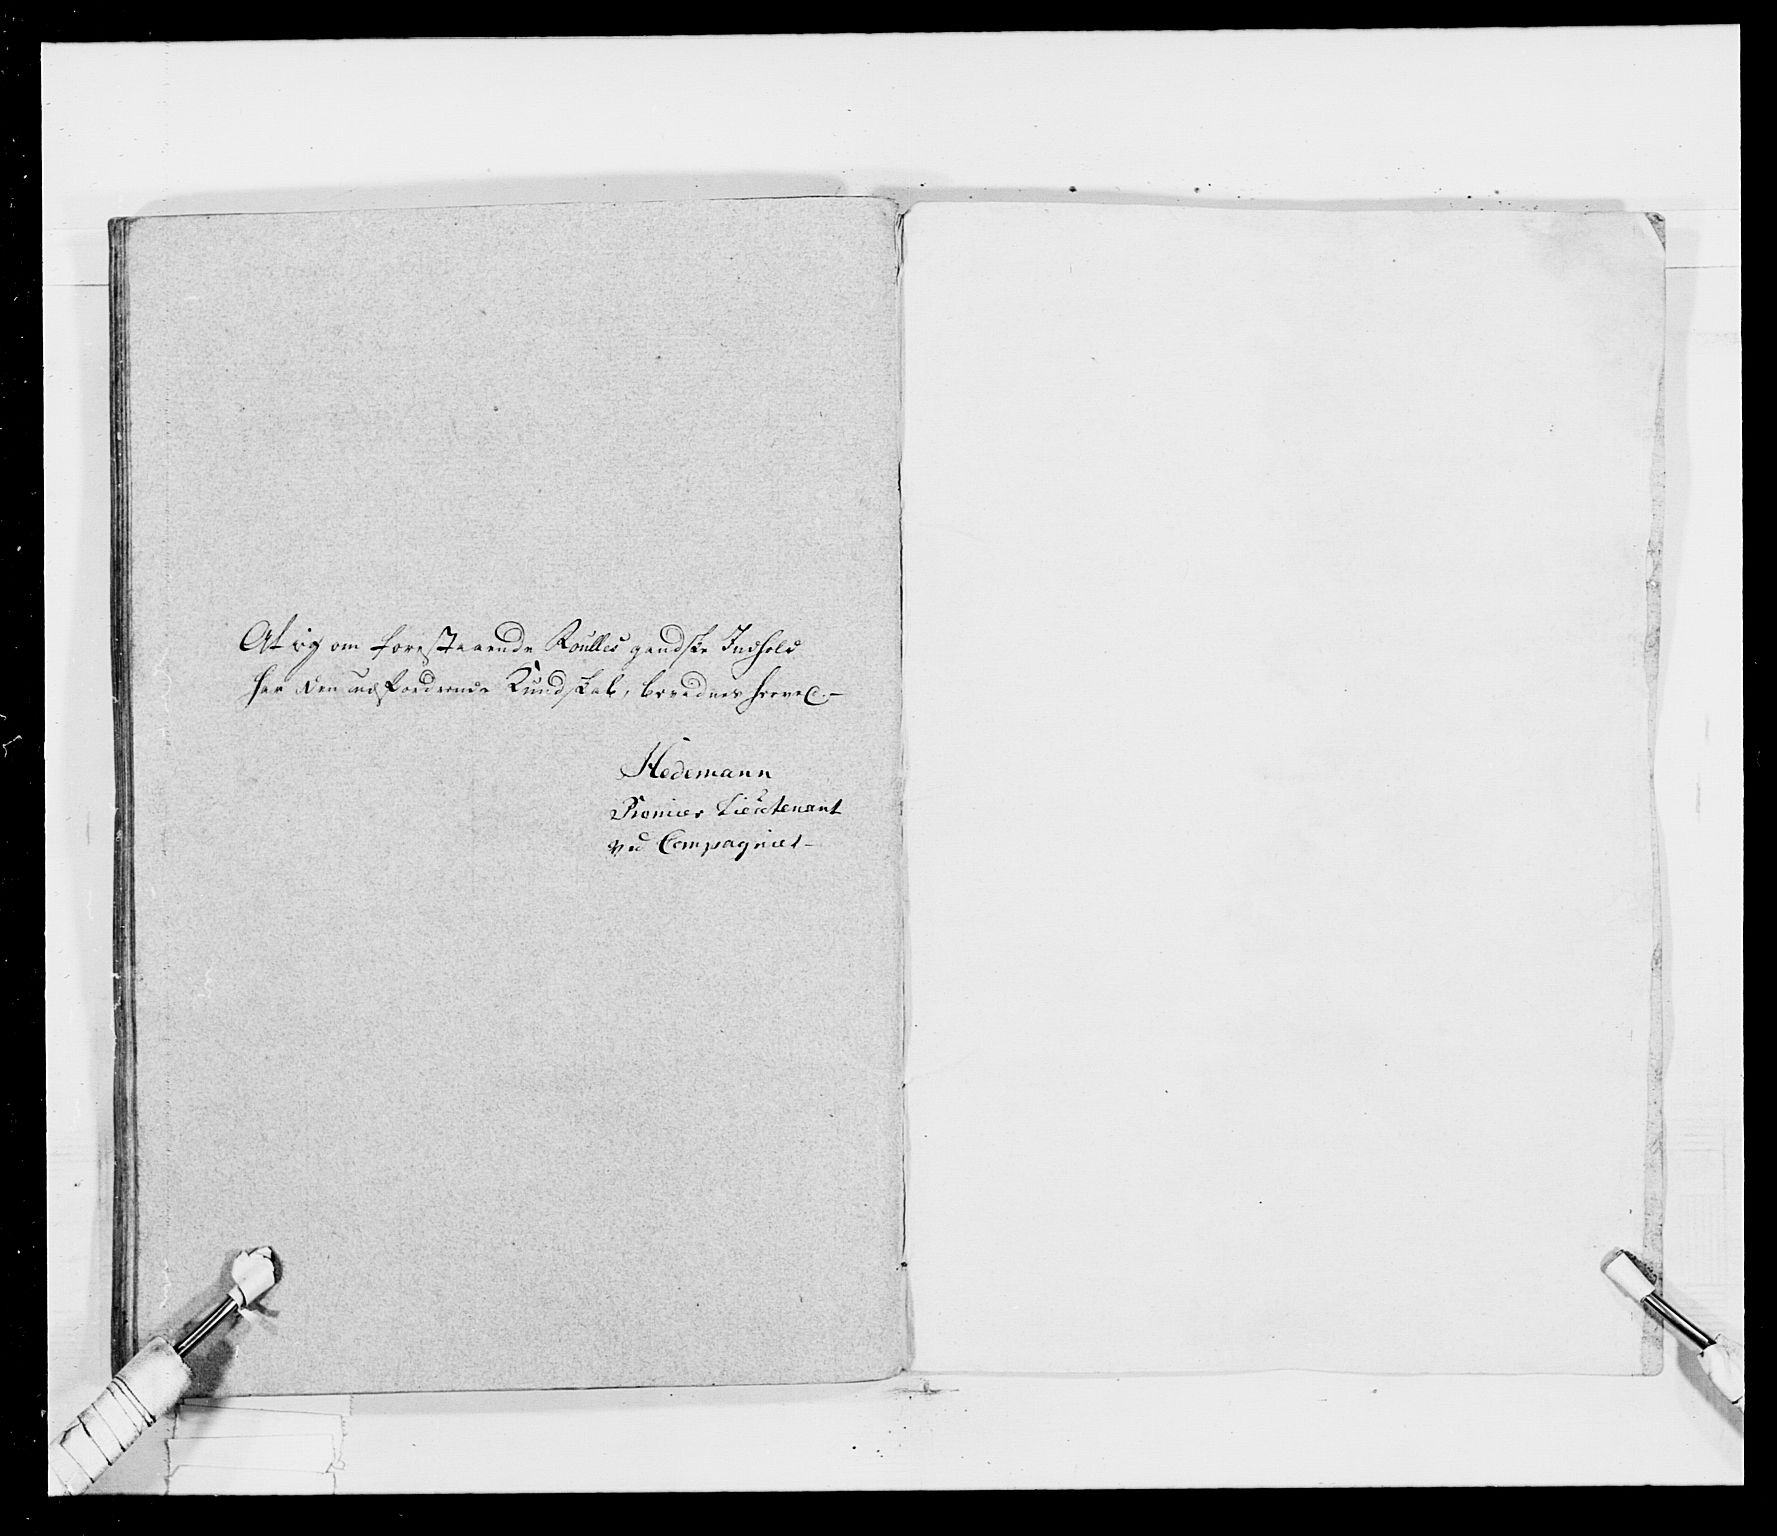 At ieg om forestaaende Roulles gandske Indhold
har den udfordrende Kundskab, bevidnes herved.-
Hedemann
Premier Lieutenant
ved Compagniet-